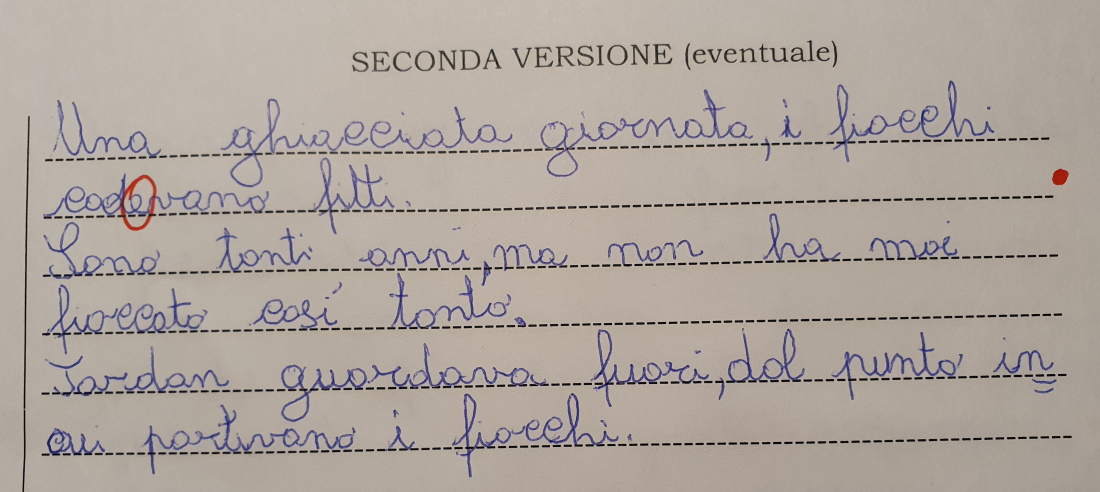 SECONDA VERSIONE (eventuale)
Una ghiacciata giornata, i fiocchi
cadevano fitti.
Sono tanti anni, ma non ha mai
fioccato così tanto.
Jardan guardava fuori, dal punto in
cui partivano i fiocchi.